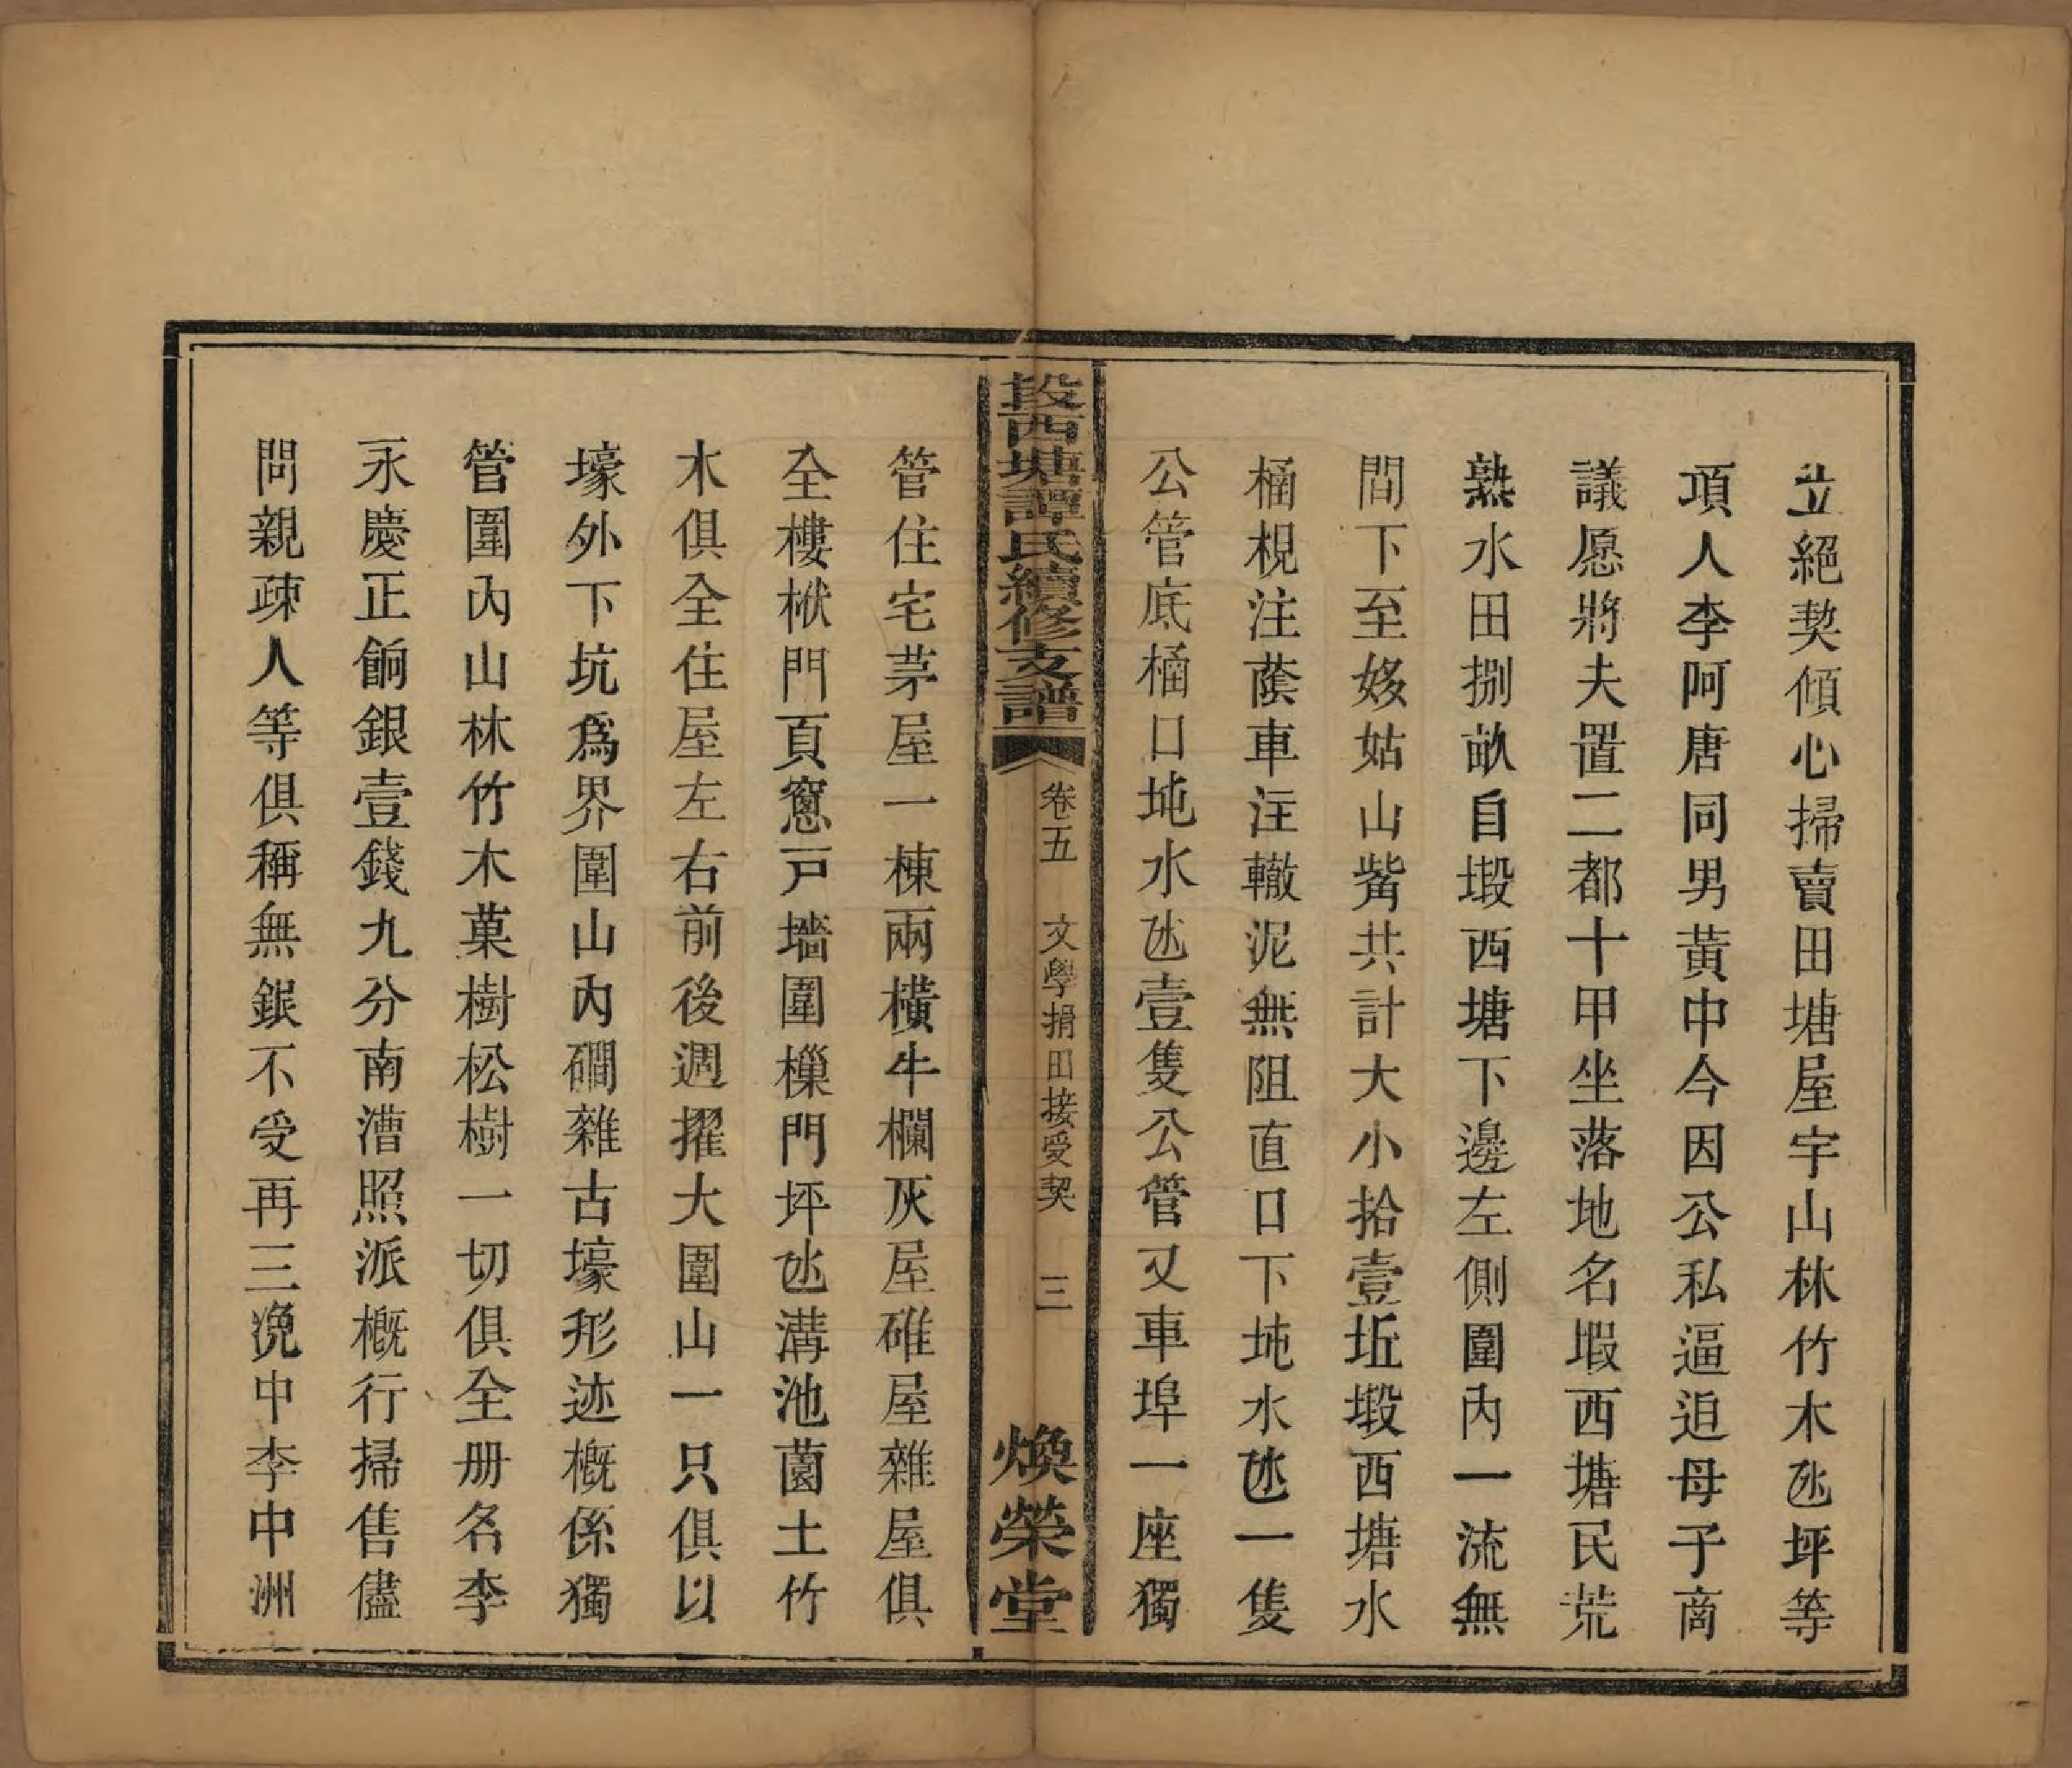 立絕契傾心掃賣田塘屋宇山林竹木氹坪等
項人李阿唐同男黃中今因公私逼迫母子商
議愿將夫置二都十甲坐落地名塅西塘民荒
熟水田捌畝自塅西塘下邊左側圍內一流無
間下至姣姑山觜共計大小拾壹坵塅西塘水
桶梘注蔭車注轍泥無阻直口下坉水氹一隻
公管底桶口坉水氹壹隻公管又車埠一座獨
段西塘譚氏續修支譜
卷五
文學捐田接受契
三
煥榮堂
管住宅茅屋一棟兩橫牛欄灰屋碓屋雜屋俱
全樓栿門頁窻戸墻圍樔門坪氹溝池薗土竹
木俱全住屋左右前後週擢大圍山一只俱以
壕外下坑爲界圍山內磵雜古壕形迹概係獨
管圍內山林竹木菓樹松樹一切俱全册名李
永慶正餉銀壹錢九分南漕照派概行掃售儘
問親疎人等俱稱無銀不受再三浼中李中洲